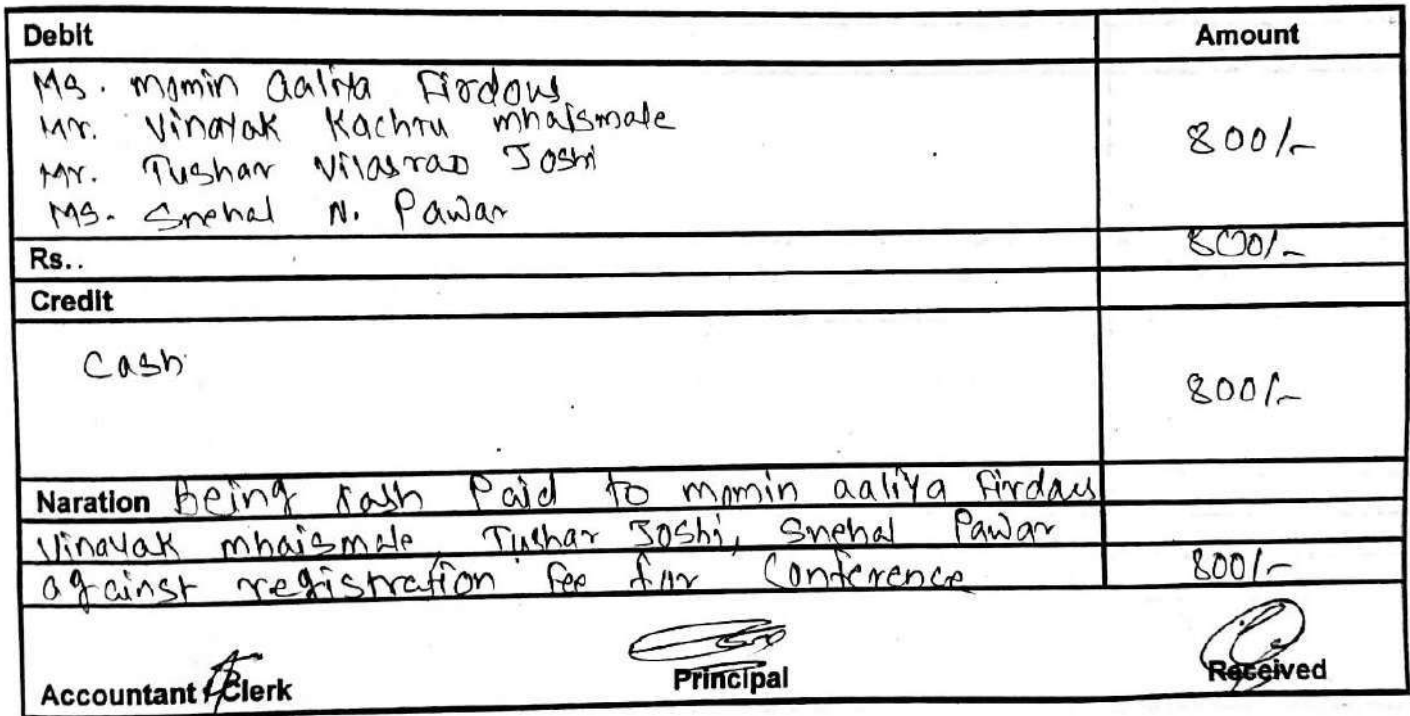 Debit Amount
Ms. Momin Aaliya Firdous
Mr. Vinayak Kachru Mhaismale
Mr. Tushar Vilasrao Joshi
Ms. Snehal N. Pawar
800/-
Rs.. 800/-
Credit
Cash
800/-
Naration Being cash Paid to momin aaliya firdaus
Vinayak mhaismale, Tushar Joshi, Snehal Pawar
against registration fee for Conference 800/-
Accountant / Clerk Principal Received